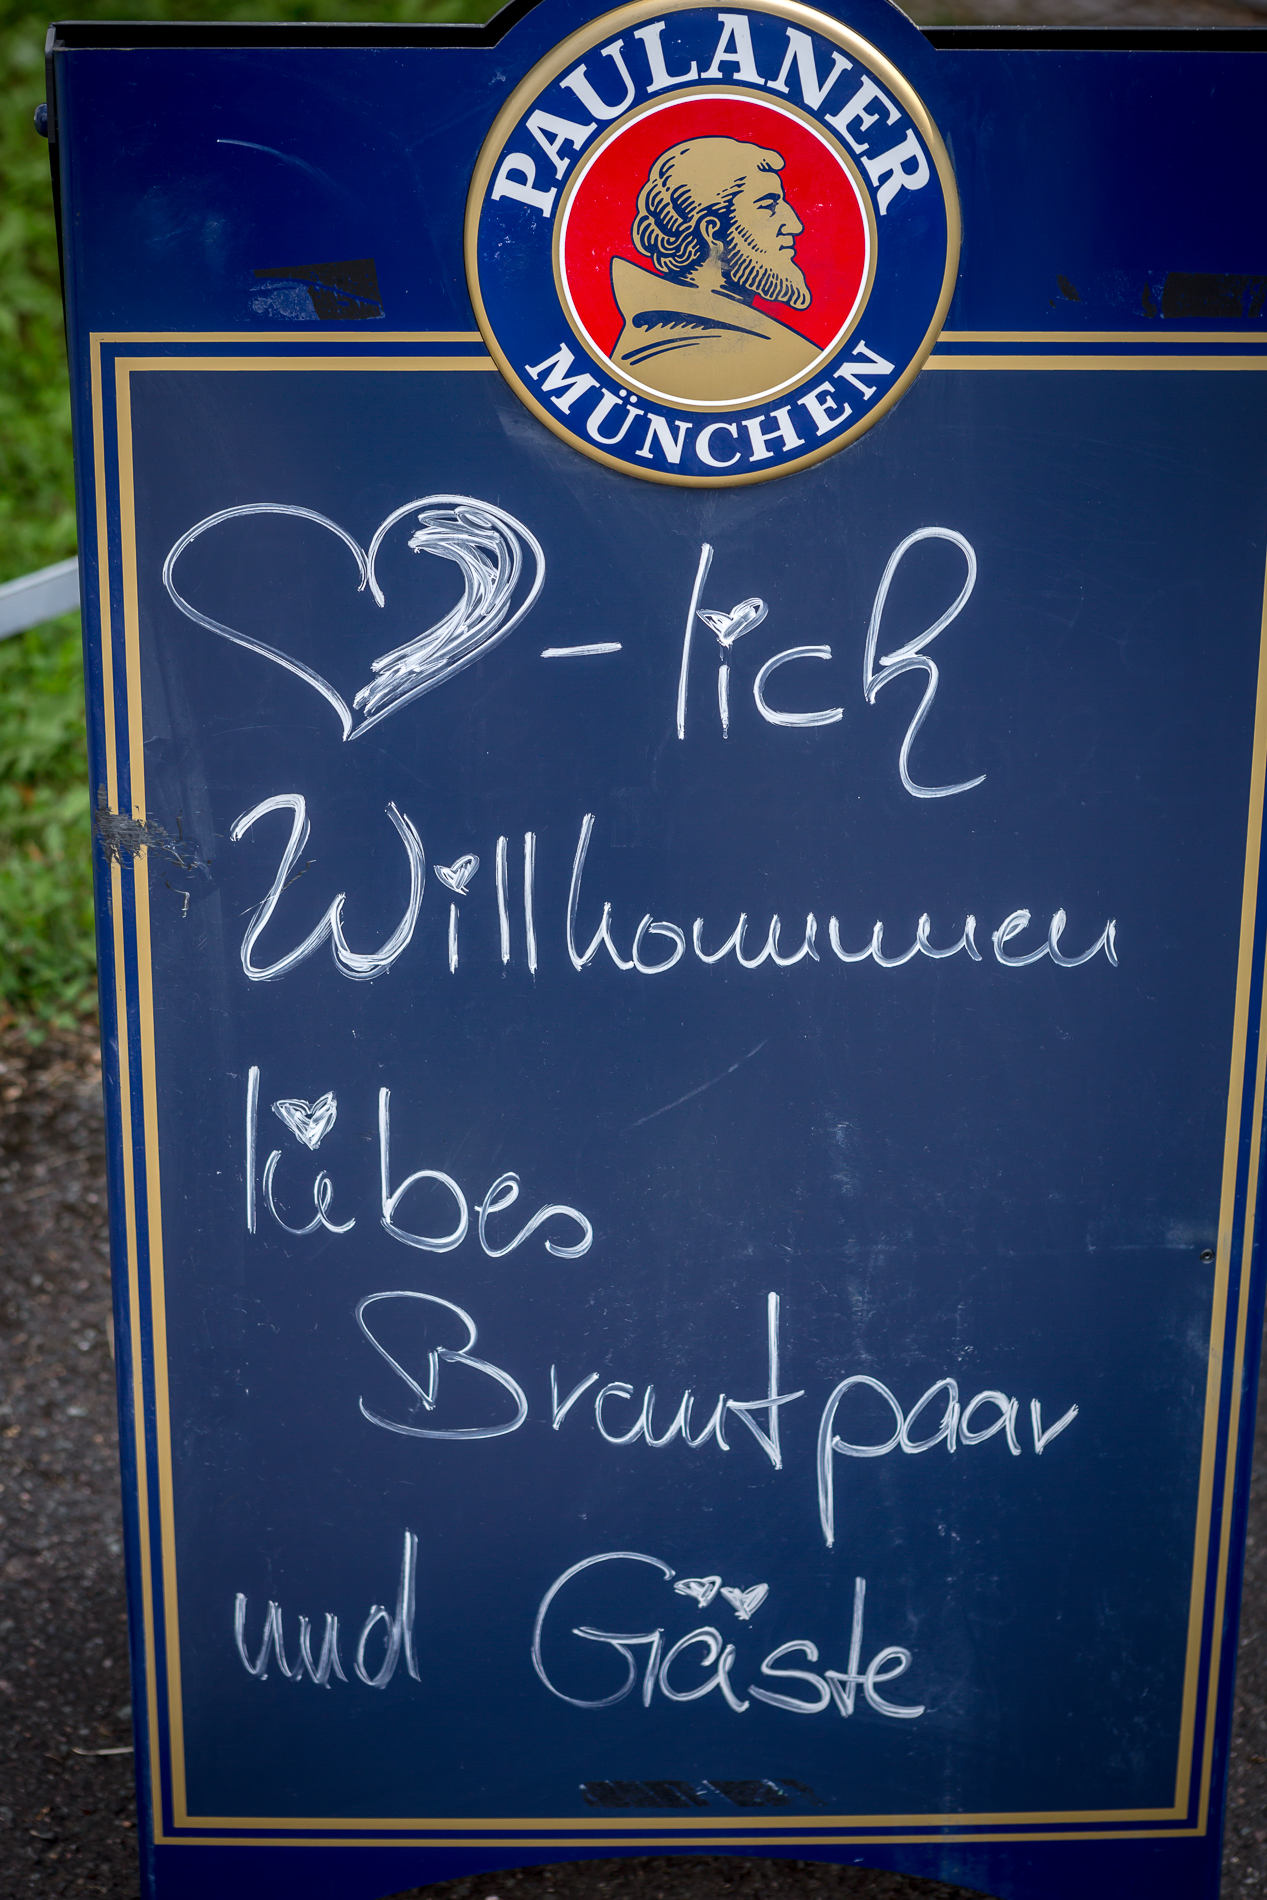 PAULANER
MÜNCHEN
♥-lich
Willkommen
liebes
Brautpaar
und Gäste